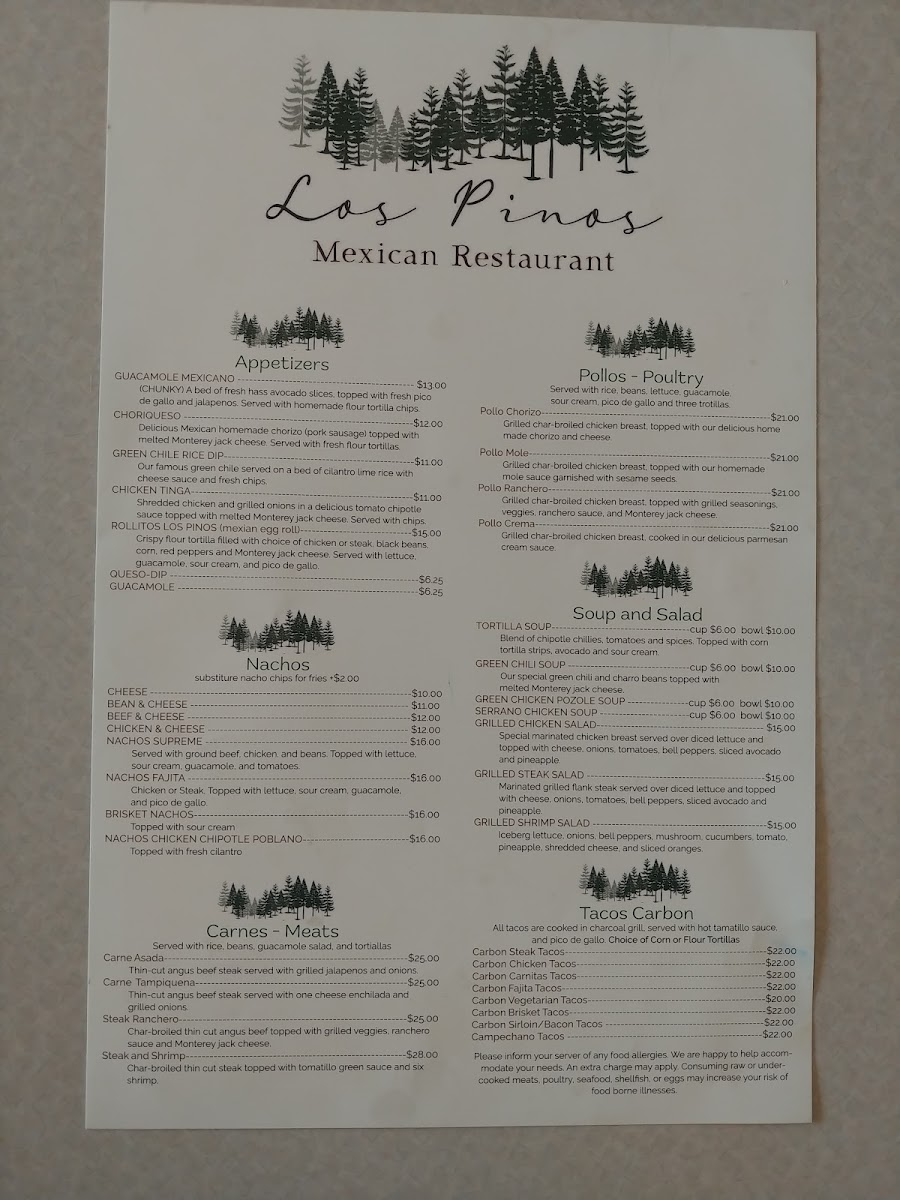 Los Pinos
Mexican Restaurant
Appetizers
GUACAMOLE MEXICANO $13.00
(CHUNKY) A bed of fresh hass avocado slices, topped with fresh pico
de gallo and jalapenos. Served with homemade flour tortilla chips.
CHORIQUESO $12.00
Delicious Mexican homemade chorizo (pork sausage) topped with
melted Monterey jack cheese. Served with fresh flour tortillas.
GREEN CHILE RICE DIP $11.00
Our famous green chile served on a bed of cilantro lime rice with
cheese sauce and fresh chips.
CHICKEN TINGA $11.00
Shredded chicken and grilled onions in a delicious tomato chipotle
sauce topped with melted Monterey jack cheese. Served with chips.
ROLLITOS LOS PINOS (mexian egg roll) $15.00
Crispy flour tortilla filled with choice of chicken or steak, black beans,
corn, red peppers and Monterey jack cheese. Served with lettuce,
guacamole, sour cream, and pico de gallo.
QUESO-DIP $6.25
GUACAMOLE $6.25
Nachos
substiture nacho chips for fries +$2.00
CHEESE $10.00
BEAN & CHEESE $11.00
BEEF & CHEESE $12.00
CHICKEN & CHEESE $12.00
NACHOS SUPREME $16.00
Served with ground beef, chicken, and beans. Topped with lettuce,
sour cream, guacamole, and tomatoes.
NACHOS FAJITA $16.00
Chicken or Steak. Topped with lettuce, sour cream, guacamole,
and pico de gallo.
BRISKET NACHOS $16.00
Topped with sour cream
NACHOS CHICKEN CHIPOTLE POBLANO $16.00
Topped with fresh cilantro
Carnes - Meats
Served with rice, beans, guacamole salad, and tortiallas
Carne Asada $25.00
Thin-cut angus beef steak served with grilled jalapenos and onions.
Carne Tampiquena $25.00
Thin-cut angus beef steak served with one cheese enchilada and
grilled onions.
Steak Ranchero $25.00
Char-broiled thin cut angus beef topped with grilled veggies, ranchero
sauce and Monterey jack cheese.
Steak and Shrimp $28.00
Char-broiled thin cut steak topped with tomatillo green sauce and six
shrimp.
Pollos - Poultry
Served with rice, beans, lettuce, guacamole,
sour cream, pico de gallo and three trotillas.
Pollo Chorizo $21.00
Grilled char-broiled chicken breast, topped with our delicious home
made chorizo and cheese.
Pollo Mole $21.00
Grilled char-broiled chicken breast, topped with our homemade
mole sauce garnished with sesame seeds.
Pollo Ranchero $21.00
Grilled char-broiled chicken breast, topped with grilled seasonings,
veggies, ranchero sauce, and Monterey jack cheese.
Pollo Crema $21.00
Grilled char-broiled chicken breast, cooked in our delicious parmesan
cream sauce.
Soup and Salad
TORTILLA SOUP cup $6.00 bowl $10.00
Blend of chipotle chillies, tomatoes and spices. Topped with corn
tortilla strips, avocado and sour cream.
GREEN CHILI SOUP cup $6.00 bowl $10.00
Our special green chili and charro beans topped with
melted Monterey jack cheese.
GREEN CHICKEN POZOLE SOUP cup $6.00 bowl $10.00
SERRANO CHICKEN SOUP cup $6.00 bowl $10.00
GRILLED CHICKEN SALAD $15.00
Special marinated chicken breast served over diced lettuce and
topped with cheese, onions, tomatoes, bell peppers, sliced avocado
and pineapple.
GRILLED STEAK SALAD $15.00
Marinated grilled flank steak served over diced lettuce and topped
with cheese, onions, tomatoes, bell peppers, sliced avocado and
pineapple.
GRILLED SHRIMP SALAD $15.00
Iceberg lettuce, onions, bell peppers, mushroom, cucumbers, tomato,
pineapple, shredded cheese, and sliced oranges.
Tacos Carbon
All tacos are cooked in charcoal grill, served with hot tamatillo sauce,
and pico de gallo. Choice of Corn or Flour Tortillas
Carbon Steak Tacos $22.00
Carbon Chicken Tacos $22.00
Carbon Carnitas Tacos $22.00
Carbon Fajita Tacos $22.00
Carbon Vegetarian Tacos $20.00
Carbon Brisket Tacos $22.00
Carbon Sirloin/Bacon Tacos $22.00
Campechano Tacos $22.00
Please inform your server of any food allergies. We are happy to help accom-
modate your needs. An extra charge may apply. Consuming raw or under-
cooked meats, poultry, seafood, shellfish, or eggs may increase your risk of
food borne illnesses.